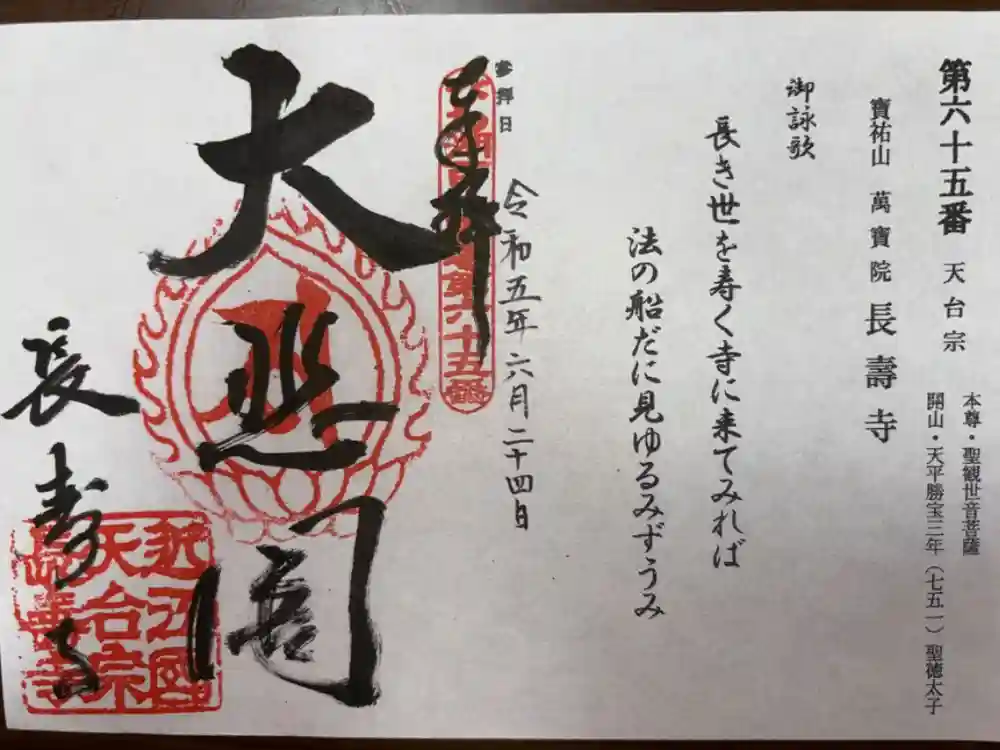 第六十五番 天台宗
本尊・聖観世音菩薩
開山・天平勝宝三年(七五一)聖徳太子
寶祐山 萬寶院 長壽寺
御詠歌
長き世を寿く寺に来てみれば
法の船だに見ゆるみずうみ
参拝日
令和五年六月二十四日
奉拝
第六十五番
大悲閣
長寿寺
近江國
天台宗
長壽寺